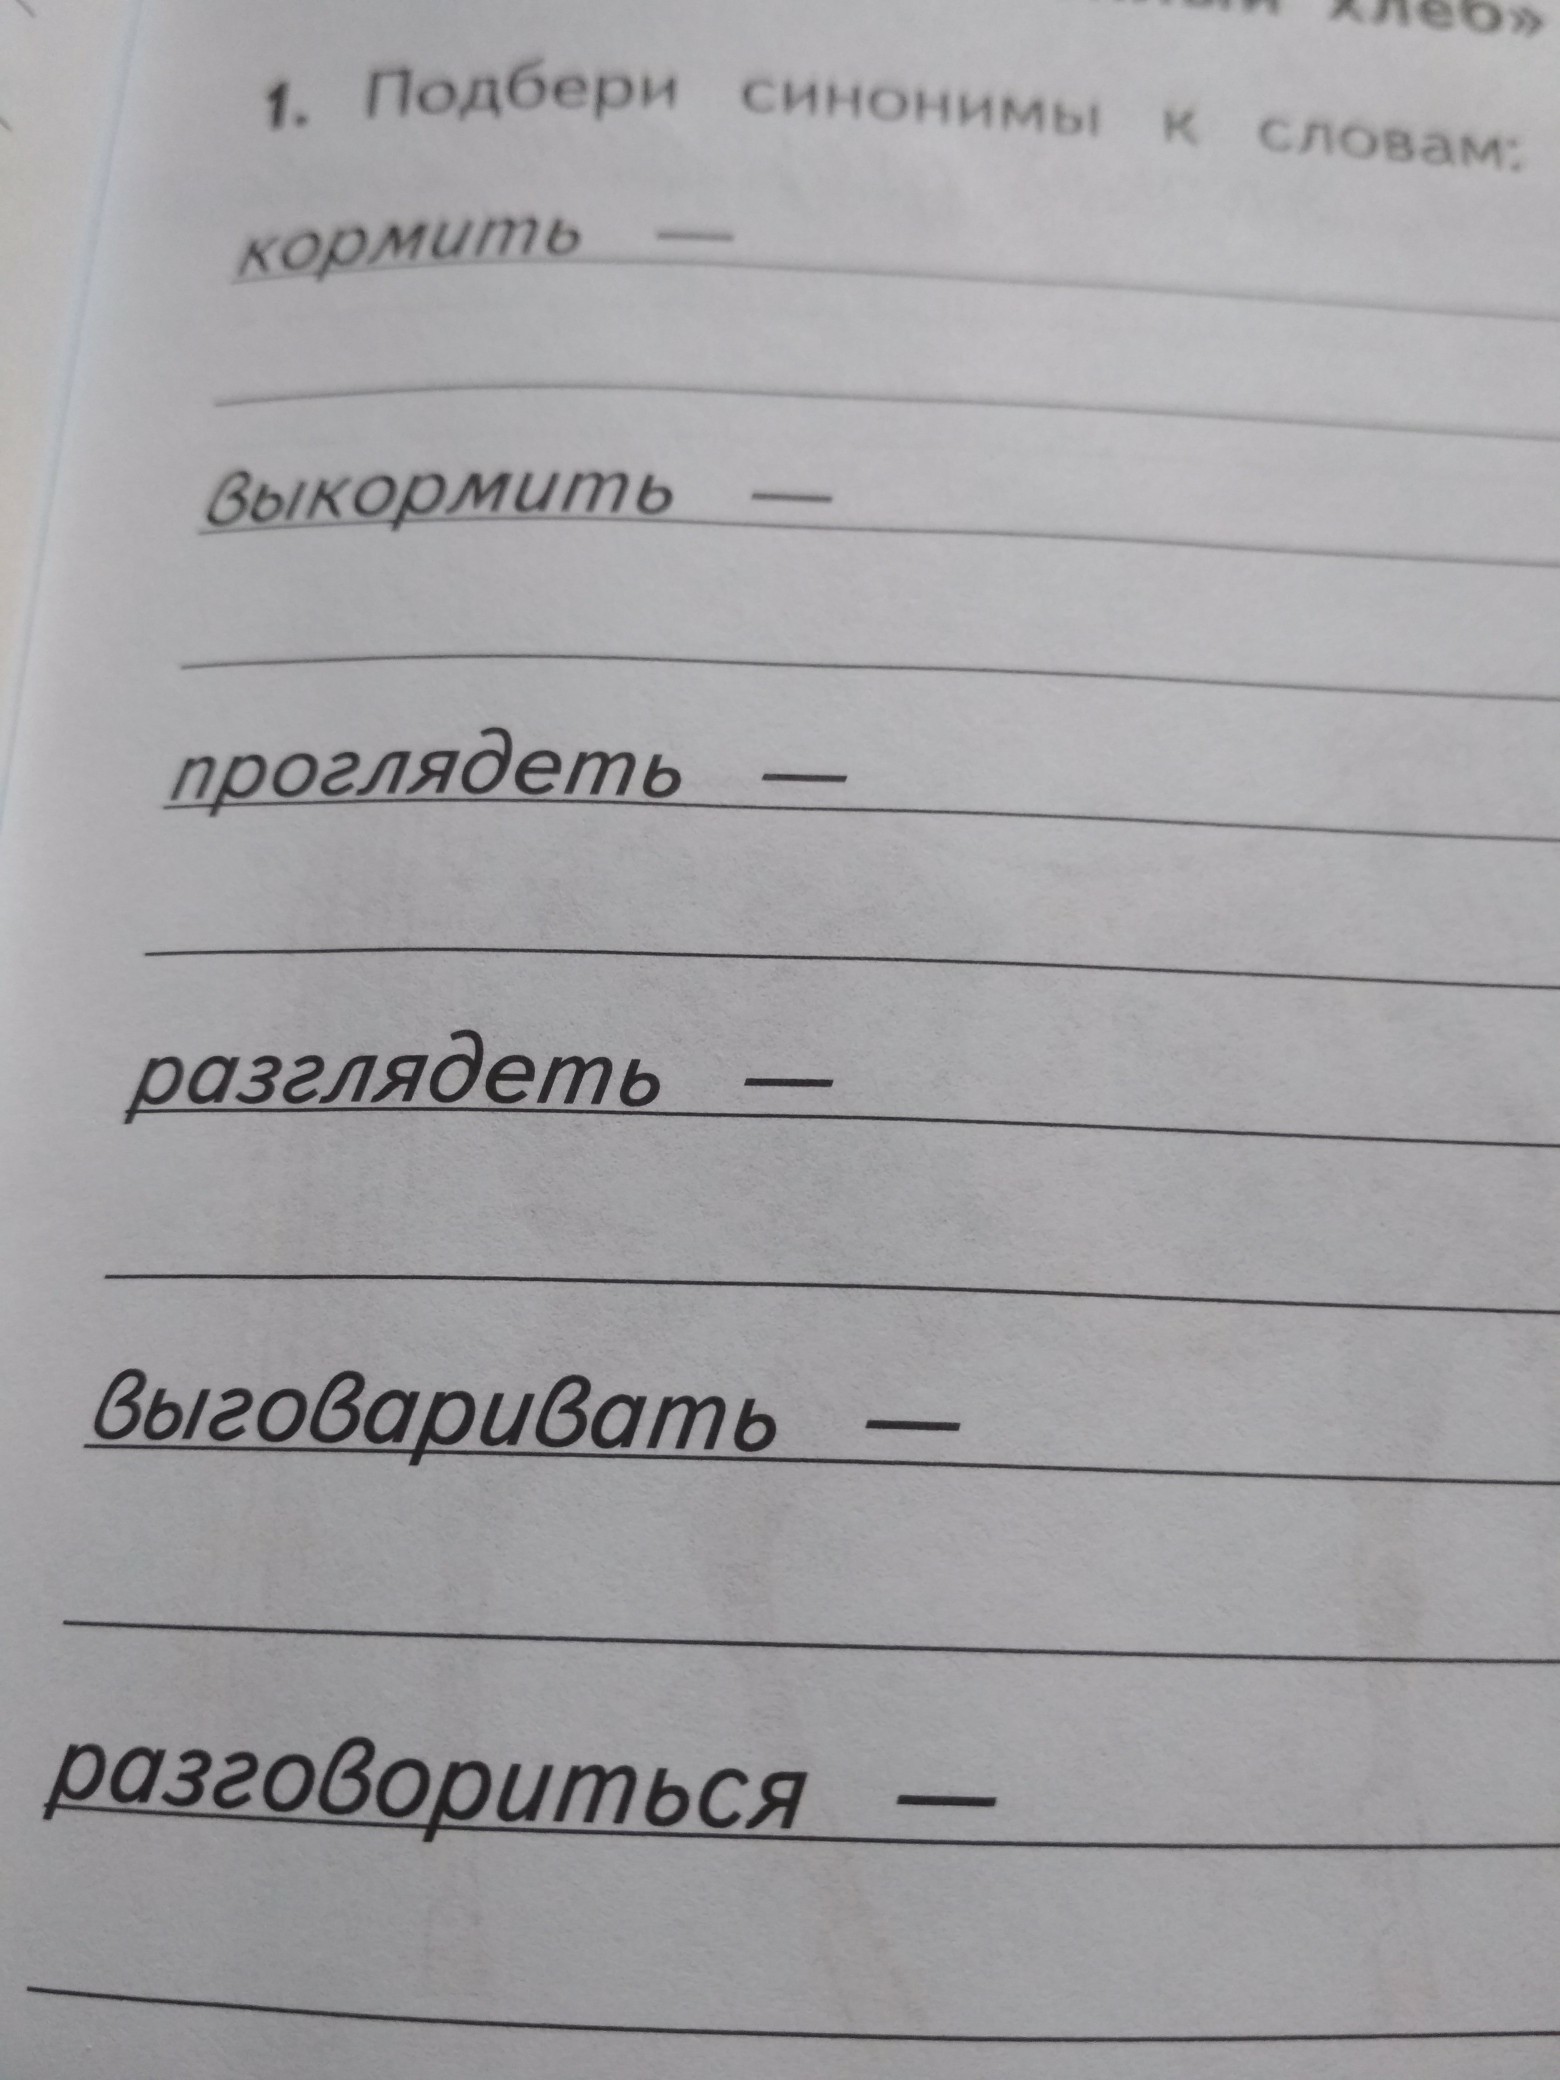 хлеб»
1. Подбери синонимы к словам:
кормить —
выкормить —
проглядеть —
разглядеть —
выговаривать —
разговориться —